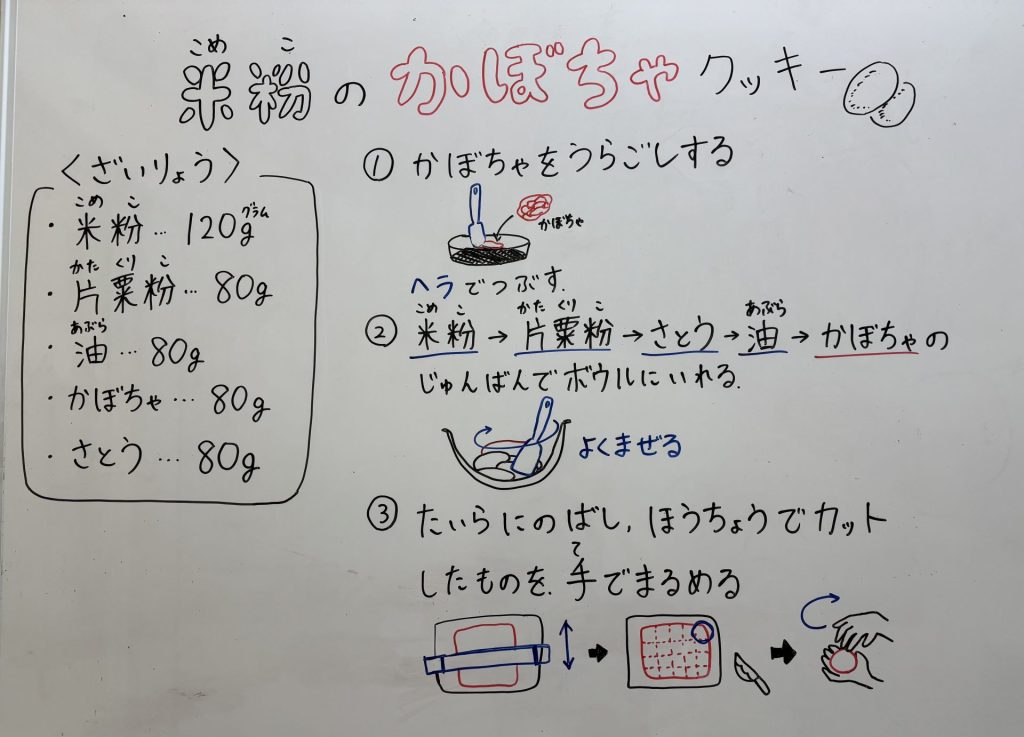 こめ こ
米粉のかぼちゃクッキー
〈ざいりょう〉
こめ こ グラム
・米粉…120g
かた くり こ
・片栗粉…80g
あぶら
・油…80g
・かぼちゃ…80g
・さとう…80g
①かぼちゃをうらごしする
かぼちゃ
ヘラでつぶす.
こめ こ かた くり こ あぶら
②米粉→片栗粉→さとう→油→かぼちゃの
じゅんばんでボウルにいれる.
よくまぜる
③たいらにのばし,ほうちょうでカット
て
したものを.手でまるめる